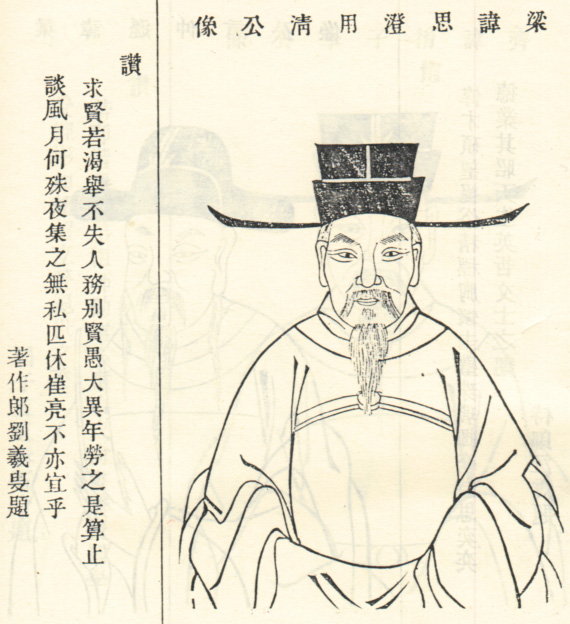 梁諱思澄用清公像
讚
求賢若渴舉不失人務別賢愚大異年勞之是算止
談風月何殊夜集之無私匹休崔亮不亦宜乎
著作郎劉羲叟題